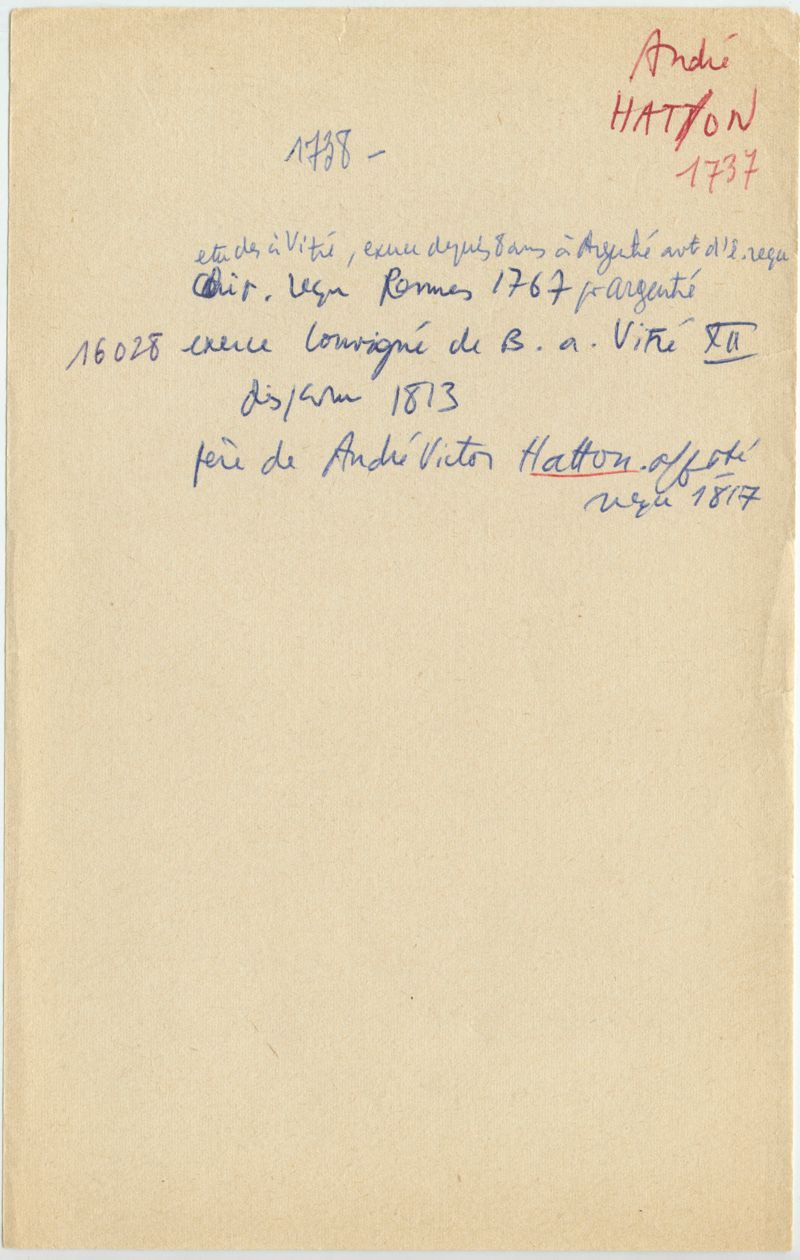 André
HATTON
1737
1738 -
etudes à Vitré, exerce depuis 8 ans à Argentré avt d'ê. reçu
Chir. reçu Rennes 1767 pr argentré
16028 exerce Louvigné de B. a. Vitré XII
disparu 1813
père de André Victor Hatton. off. sté
reçu 1817